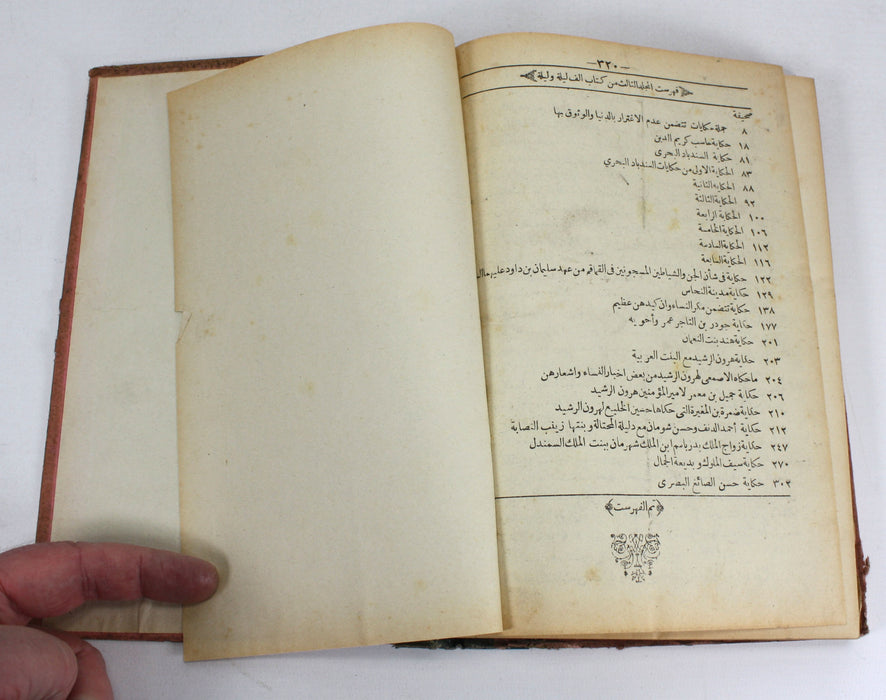 —٣٢٠—
﴿فهرست المجلد الثالث من كتاب الف ليلة وليلة﴾
صحيفة
٨ جملة حكايات تتضمن عدم الاغترار بالدنيا والوثوق بها
١٨ حكاية حاسب كريم الدين
٨١ حكاية السندباد البحرى
٨٣ الحكاية الاولى من حكايات السندباد البحري
٨٨ الحكاية الثانية
٩٢ الحكاية الثالثة
١٠٠ الحكاية الرابعة
١٠٦ الحكاية الخامسة
١١٢ الحكاية السادسة
١١٦ الحكاية السابعة
١٢٢ حكاية فى شأن الجن والشياطين المسجونين فى القماقم من عهد سليمان بن داود عليهما
١٢٩ حكاية مدينة النحاس
١٣٨ حكاية تتضمن مكر النساء وان كيدهن عظيم
١٧٧ حكاية جودر بن التاجر عمر وأخويه
٢٠١ حكاية هند بنت النعمان
٢٠٣ حكاية هرون الرشيد مع البنت العربية
٢٠٤ ما حكاه الاصمعى لهرون الرشيد من بعض اخبار النساء واشعارهن
٢٠٦ حكاية جميل بن معمر لامير المؤمنين هرون الرشيد
٢١٠ حكاية ضمرة بن المغيرة التى حكاها حسين الخليع لهرون الرشيد
٢١٢ حكاية أحمد الدنف وحسن شومان مع دليلة المحتالة وبنتها زينب النصابة
٢٤٧ حكاية زواج الملك بدر باسم ابن الملك شهرمان ببنت الملك السمندل
٢٧٠ حكاية سيف الملوك وبديعة الجمال
٣٠٢ حكاية حسن الصائغ البصرى
﴿تم الفهرست﴾